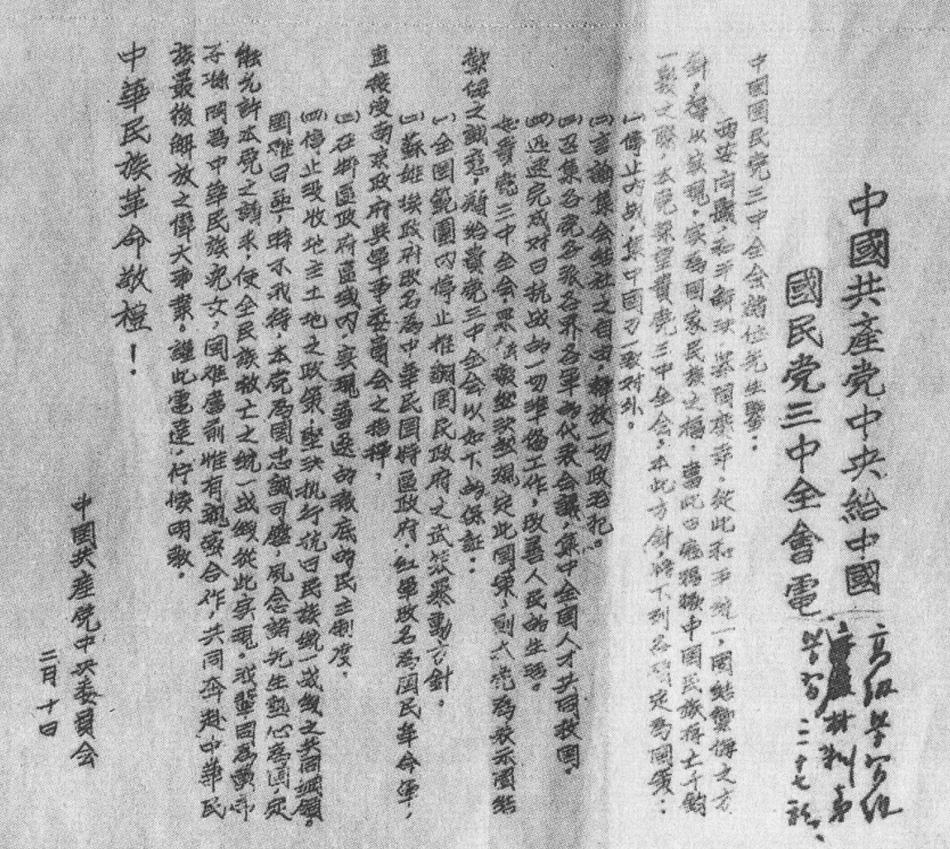 中國共產党中央給中國
國民党三中全會電
高级学习组
材料第
二十七號
中國國民党三中全会諸位先生鑒:
西安问题,和平解决,举國庆幸,從此和平统一,團结禦侮之方
針,得以实現,实為國家民族之福,當此日寇猖獗中國民族存亡千鈞
一髮之際,本党深望貴党三中全会,本此方針,將下列各項定為國策:
(一)停止内战,集中國力一致対外。
(二)言論集会結社之自由,释放一切政治犯。
(三)召集各党各派各界各軍的代表会議,集中全國人才共同救國。
(四)迅速完成对日抗战的一切準俻工作,改善人民的生活。
如貴党三中全会果能毅然决然规定此國策,則本党為表示團結
禦侮之誠意,願给貴党三中全会以如下的保証:
(一)全國範圍内停止推翻國民政府之武装暴動方針。
(二)蘇維埃政府改名為中華民國特區政府,紅軍改名為國民革命軍,
直接受南京政府與軍事委員会之指揮,
(三)在特區政府區域内,实現普选的徹底的民主制度。
(四)停止没收地主土地之政策,堅决执行抗日民族统一战線之共同綱領。
國难日亟,時不我待,本党為國忠誠可鑒,夙念諸先生熱心為國,定
能允許本党之請求,使全民族救亡之统一战線從此实現,我輩同為黄帝
子孫同為中華民族兒女,国难當前惟有親密合作,共同奔赴中華民
族最後解放之偉大事業。謹此電達,佇候明教。
中華民族革命敬禮!
中國共產党中央委員会
二月十日